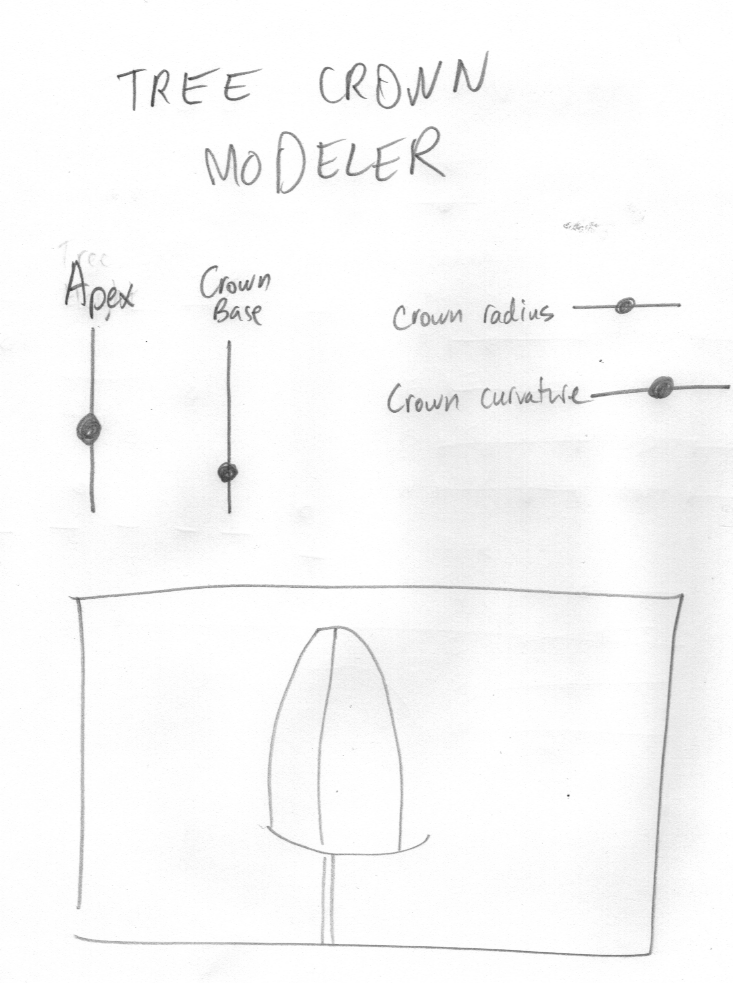 TREE CROWN
MODELER
Tree
Apex
Crown
Base
Crown radius
Crown curvature